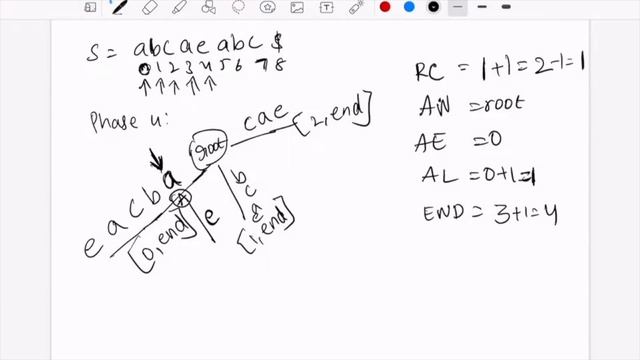 S = abcaeabc$
0 1 2 3 4 5 6 7 8
Phase 4:
RC = 1+1=2-1=1
AN = root
AE = 0
AL = 0+1=1
END = 3+1=4
root
cae
[2, end]
a
b
c
a
e
A
[0, end]
e
b
c
[1, end]